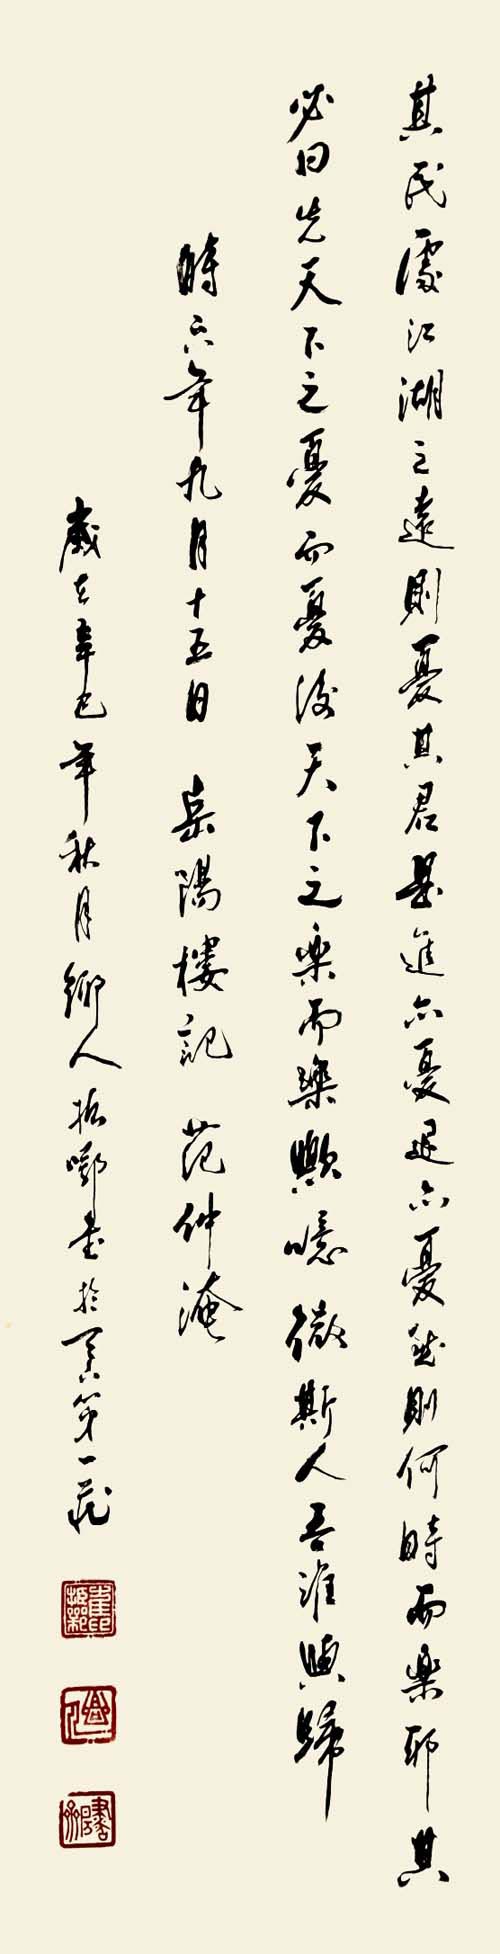 其民處江湖之遠則憂其君是進亦憂退亦憂然則何時而楽耶其
必曰先天下之憂而憂後天下之楽而樂歟噫微斯人吾誰與歸
時六年九月十五日 岳陽樓記 范仲淹
歲在辛巳年秋月鄉人振書於第一